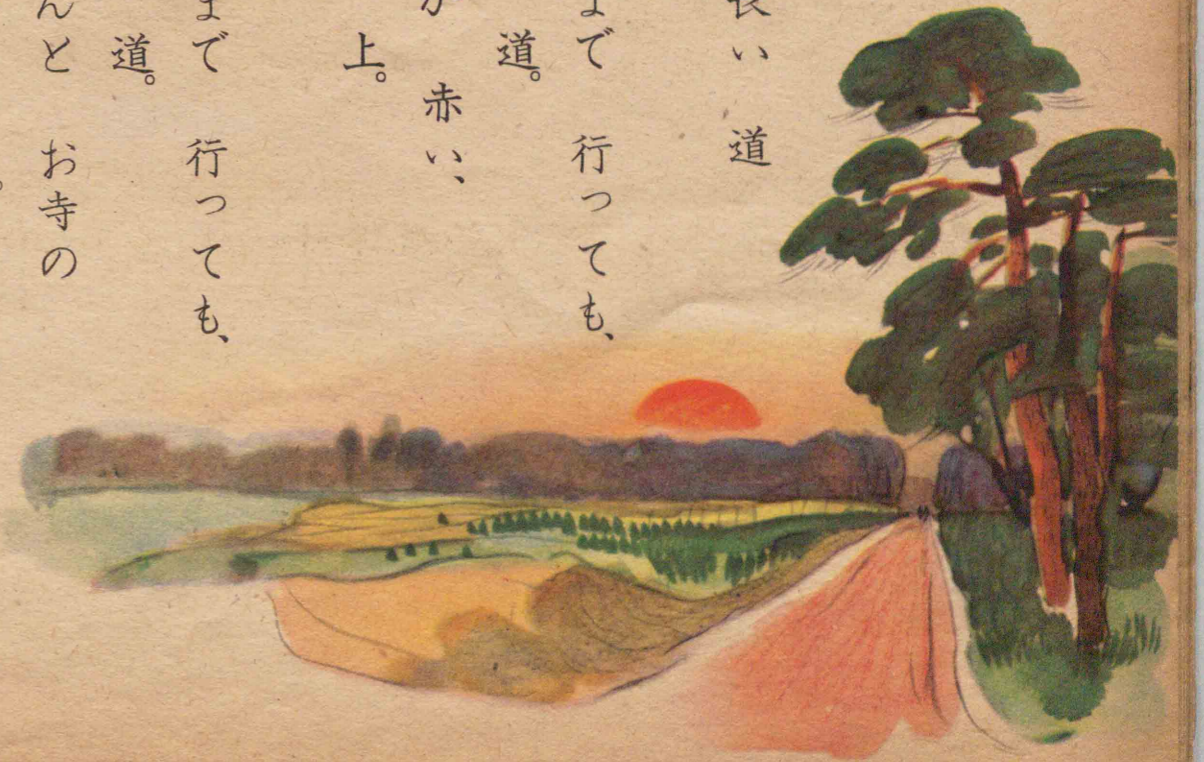 長い 道
まで 行っても、
道。
が 赤い、
上。
まで 行っても、
道。
んと お寺の
。